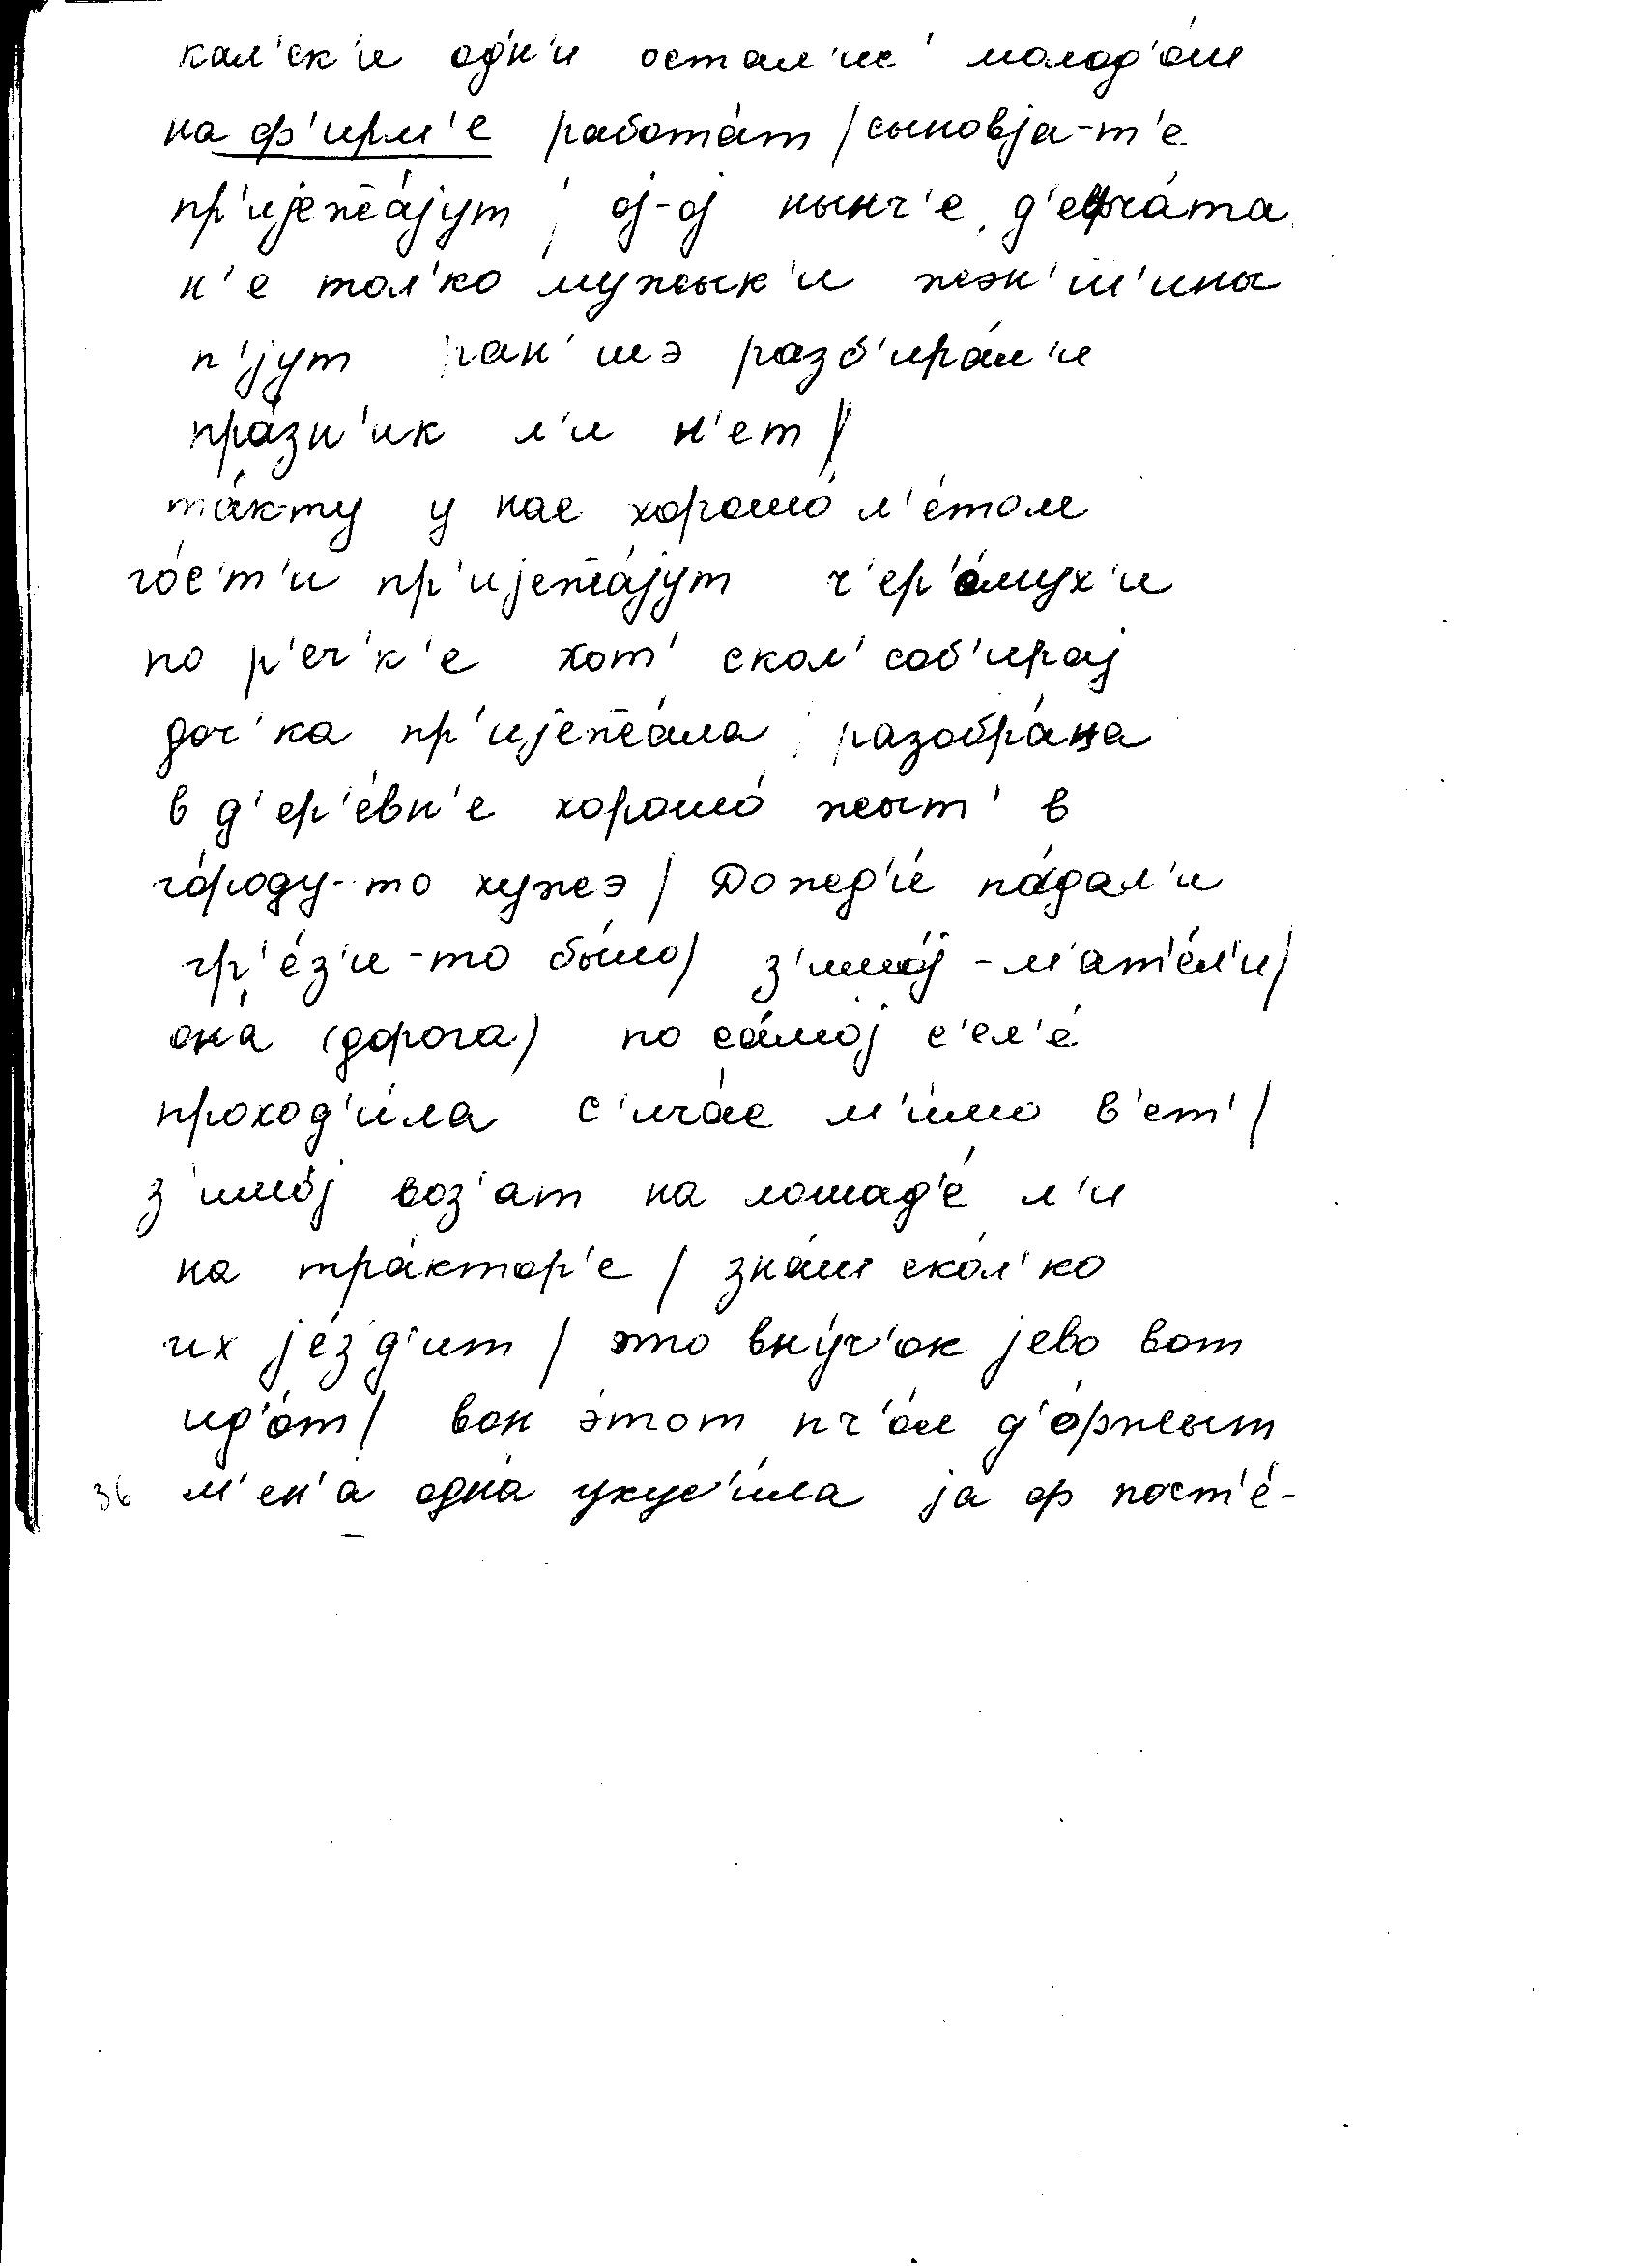 кал'ск'и одн'и остал'ис' молод'о́ш
на ф'ирм'е работа́т / сыновjа-т'е
пр'иjежжа́jут / оj-оj нынч'е д'ефча́та
н'е тол'ко мужык'и жэн'ш'ины
п'jут ран'шэ разб'ира́л'и
пра́зн'ик л'и н'ет /
та́кту у нас хорошо́ л'е́том
го́с'т'и пр'иjежжа́jут ч'ер'о́мух'и
по р'еч'к'е хот' скол' соб'ираj
доч'ка пр'иjежжа́ла / разобра́на
в д'ер'е́вн'е хорошо́ жыт' в
го́роду-то хужэ / Дожед'и́ па́дал'и
гр'е́з'и-то бы́ло / з'имо́j - м'ат'е́л'и /
она́ (дорога) по са́моj с'ел'е́
проход'и́ла с'ича́с м'и́мо в'ет' /
з'имо́j воз'ат на лошад'е́ л'и
на тра́ктор'е / зна́ш ско́л'ко
их jе́зд'ит / это вну́ч'ок jево вот
ид'о́т / вон э́тот пч'о́л д'о́ржыт
36 м'ен'а́ одна́ укус'и́ла jа ф пост'е́-